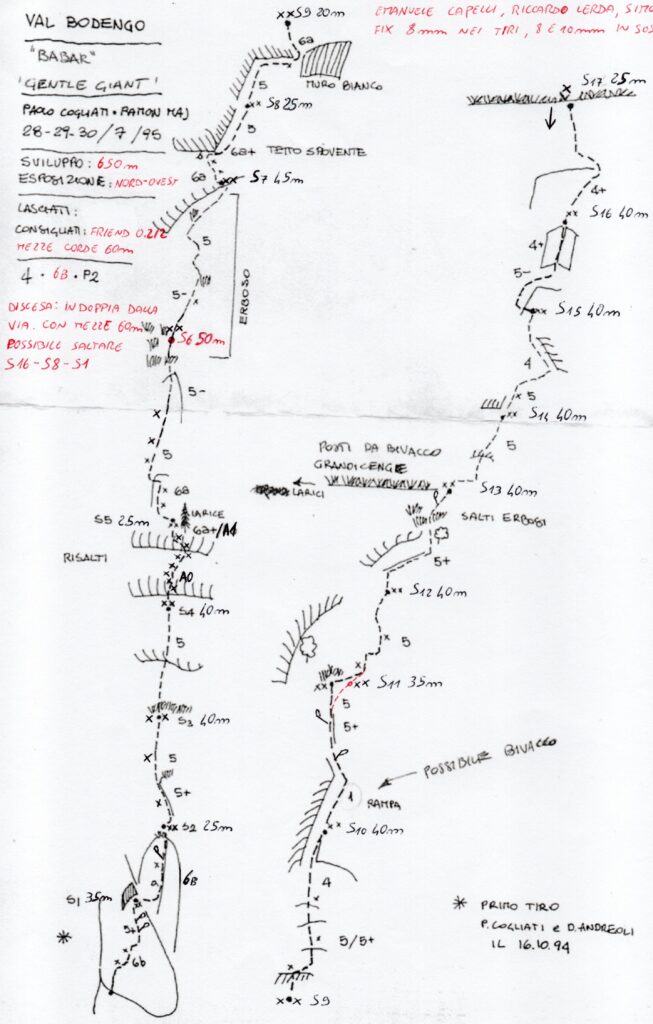 VAL BODENGO
"BABAR"
'GENTLE GIANT'
PAOLO COGLIATI • RAMON MAJ
28-29-30/7/95
SVILUPPO: 650m
ESPOSIZIONE: NORD-OVEST
LASCIATI:
CONSIGLIATI: FRIEND 0.2/2
MEZZE CORDE 60m
4 • 6B • P2
DISCESA: IN DOPPIA DALLA
VIA. CON MEZZE 60m
POSSIBILE SALTARE
S16-S8-S1
EMANUELE CAPELLI, RICCARDO LERDA, SIMO
FIX 8mm NEI TIRI, 8 E 10mm IN SOS
S9 20m
6a
MURO BIANCO
5
S8 25m
5
6a+ TETTO SPIOVENTE
6a
S7 45m
5
ERBOSO
5-
S6 50m
5-
5
6a
S5 25m
LARICE
6a+/A1
RISALTI
A0
S4 40m
5
S3 40m
5
5+
S2 25m
6B
S1 35m
5+
6b
S17 25m
4+
S16 40m
4+
5-
S15 40m
4
5
S14 40m
5
POSTI DA BIVACCO
GRANDI CENGE
LARICI
S13 40m
SALTI ERBOSI
5+
S12 40m
5
S11 35m
5
5+
POSSIBILE BIVACCO
1
RAMPA
S10 40m
4
5/5+
S9
* PRIMO TIRO
P. COGLIATI e D. ANDREOLI
IL 16.10.94